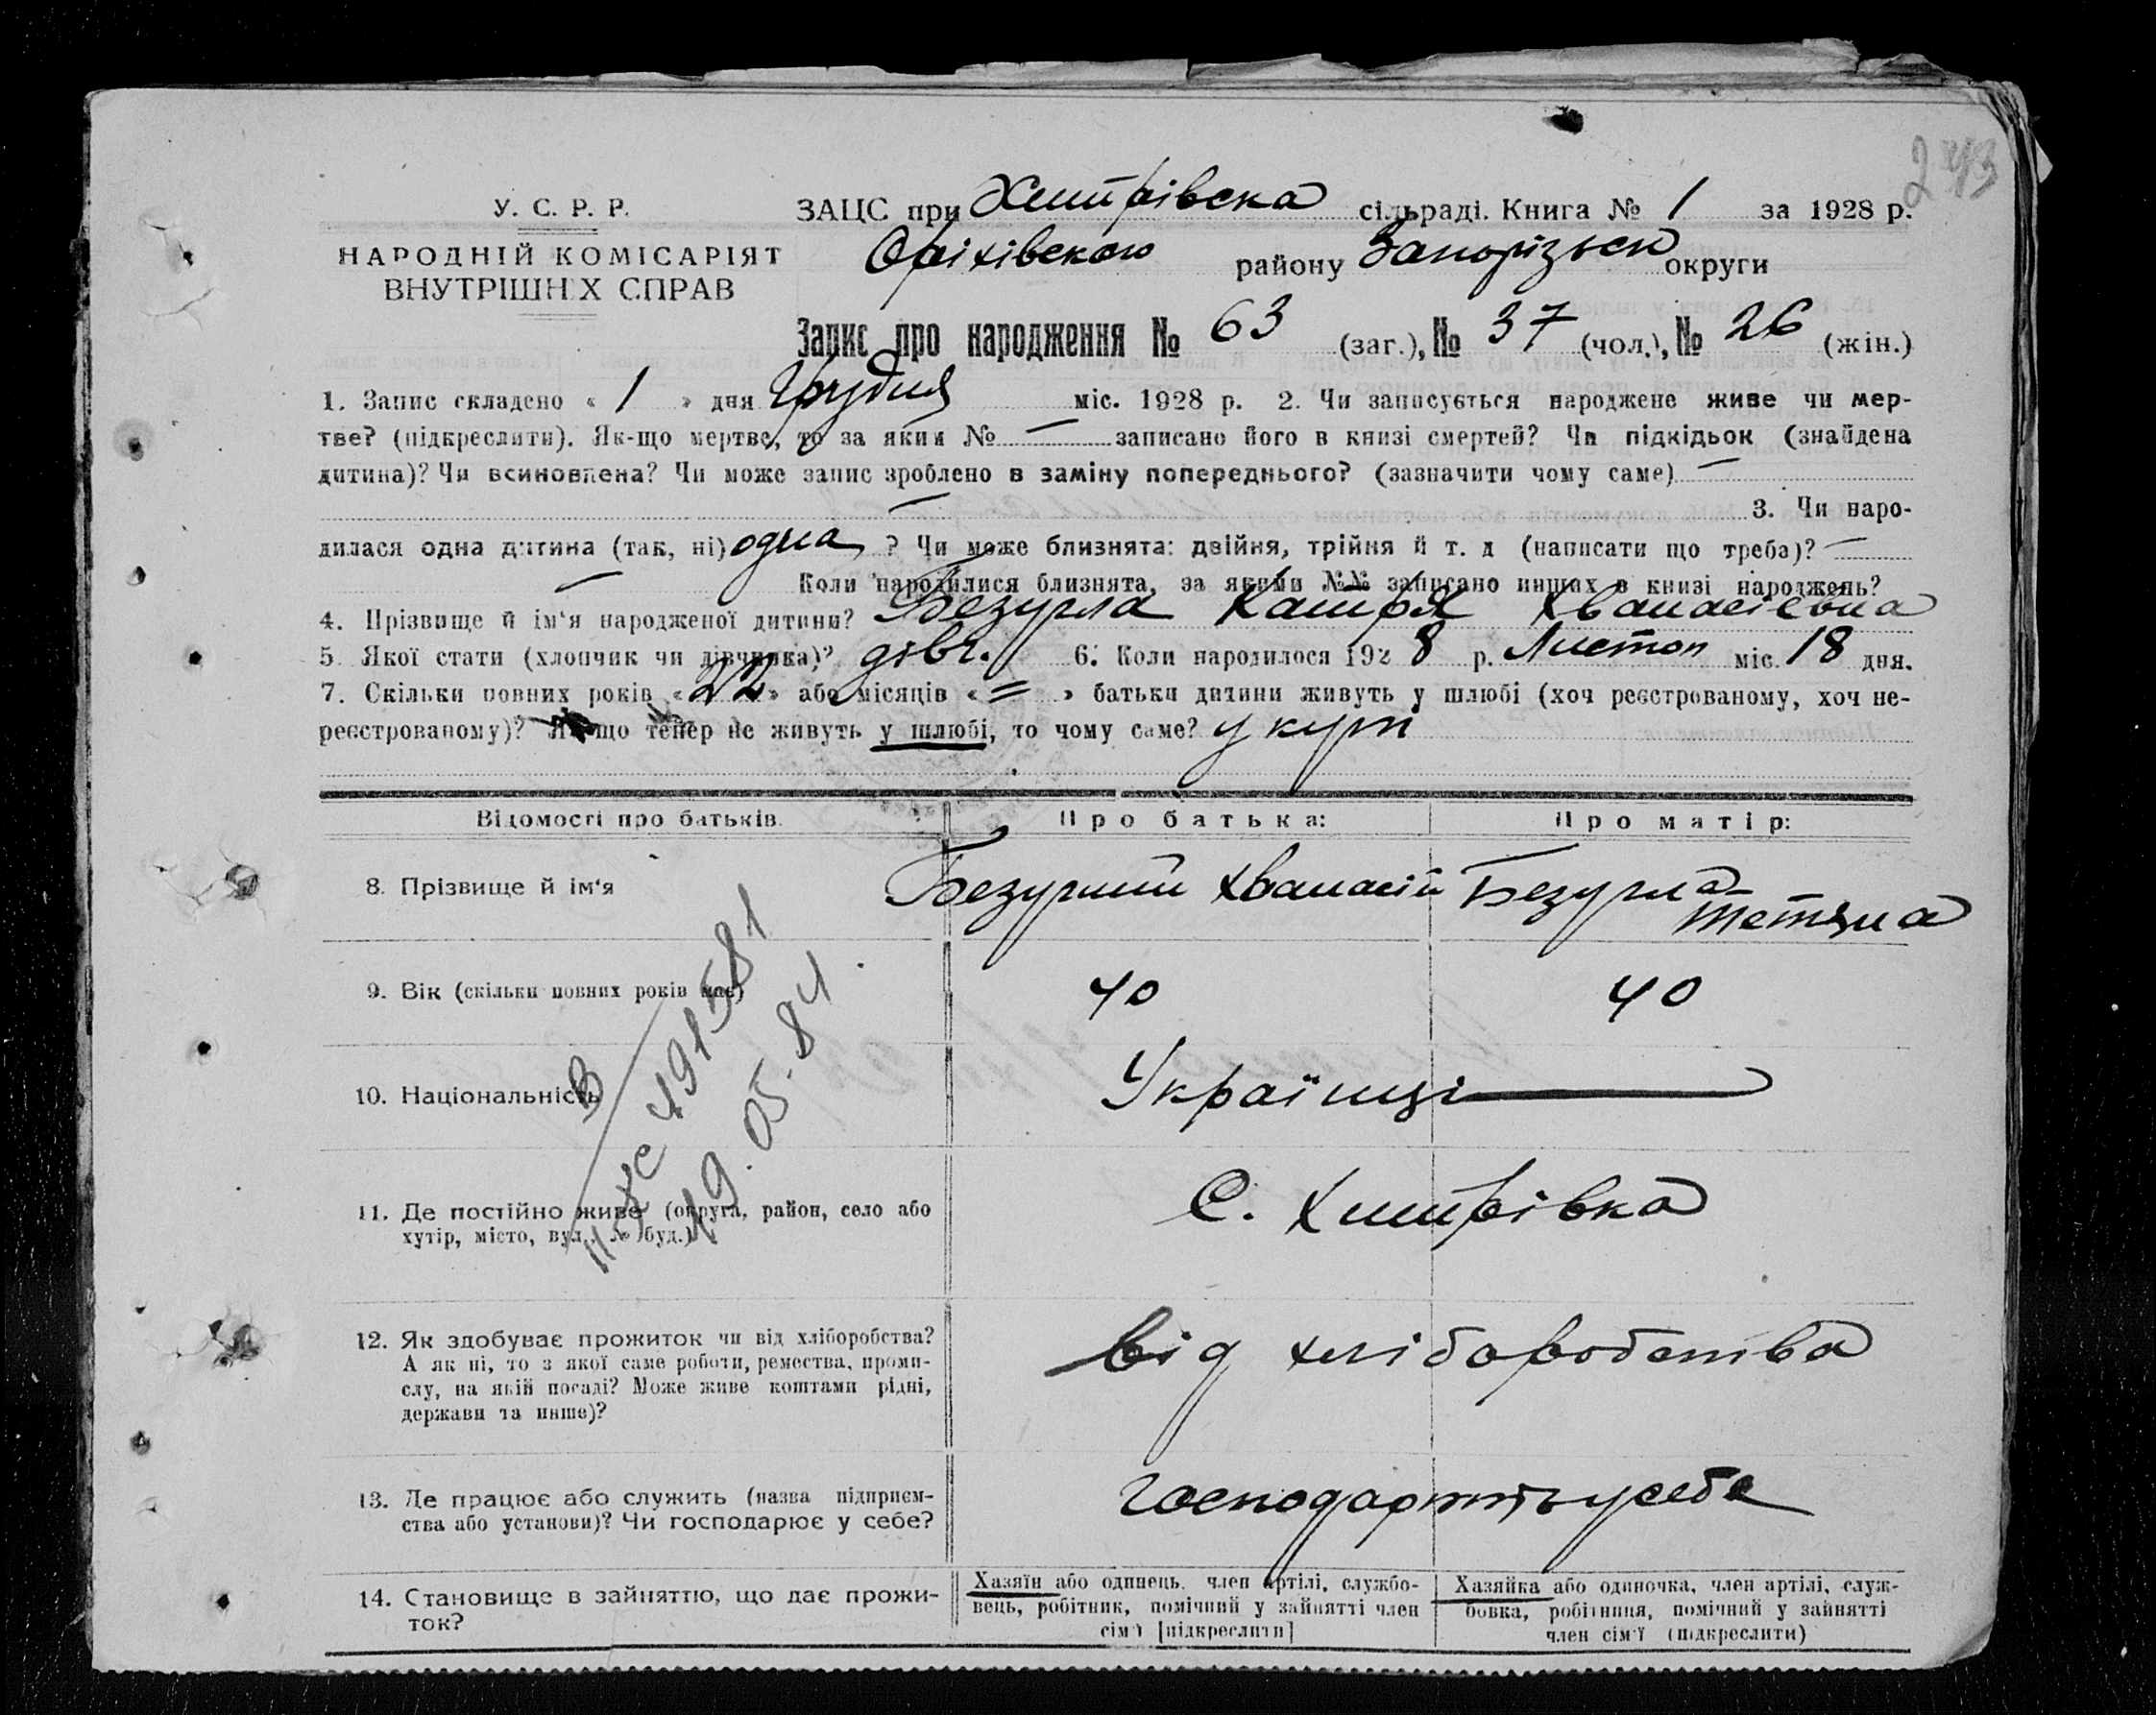 243
У. С. Р. Р.
НАРОДНІЙ КОМІСАРІЯТ
ВНУТРІШНІХ СПРАВ
ЗАЦС при Хитрівска сільраді. Книга № 1 за 1928 р.
Оріхівского району Запорізьск округи
Запис про народження № 63 (заг.), № 37 (чол.), № 26 (жін.)
1. Запис складено « 1 » дня Грудня міс. 1928 р. 2. Чи записується народжене живе чи мер-
тве? (підкреслити). Як-що мертве, то за яким № — записано його в книзі смертей? Чи підкідьок (знайдена
дитина)? Чи всиновлена? Чи може запис зроблено в заміну попереднього? (зазначити чому саме) —
— 3. Чи наро-
дилася одна дитина (так, ні) одна ? Чи може близнята: двійня, трійня й т. д (написати що треба)? —
— Коли народилися близнята, за якими №№ записано инших в книзі народжень?
4. Прізвище й ім'я народженої дитини? Безугла Катря Хванасіевна
5. Якої стати (хлопчик чи дівчинка)? дівч. 6. Коли народилося 1928 р. Листоп міс. 18 дня.
7. Скільки повних років « 22 » або місяців « = » батьки дитини живуть у шлюбі (хоч реєстрованому, хоч не-
реєстрованому)? Як-що тепер не живуть у шлюбі, то чому саме? у купі
Відомості про батьків. Про батька: Про матір:
8. Прізвище й ім'я Безуглий Хванасій Безугла Тетяна
9. Вік (скільки повних років має) 40 40
10. Національність Українці
11. Де постійно живе (округа, район, село або
хутір, місто, вул., № буд.) С. Хитрівка
12. Як здобуває прожиток чи від хліборобства?
А як ні, то з якої саме роботи, ремества, проми-
слу, на якій посаді? Може живе коштами рідні,
держави та инше)? від хліборобства
13. Де працює або служить (назва підприєм-
ства або установи)? Чи господарює у себе? господарюють у себе
14. Становище в зайняттю, що дає прожи-
ток?
Хазяїн або одинець, член артілі, службо-
вець, робітник, помічний у зайнятті член
сім'ї [підкреслити]
Хазяйка або одиночка, член артілі, служ-
бовка, робітниця, помічний у зайнятті
член сім'ї (підкреслити)
В
491581
19.05.84